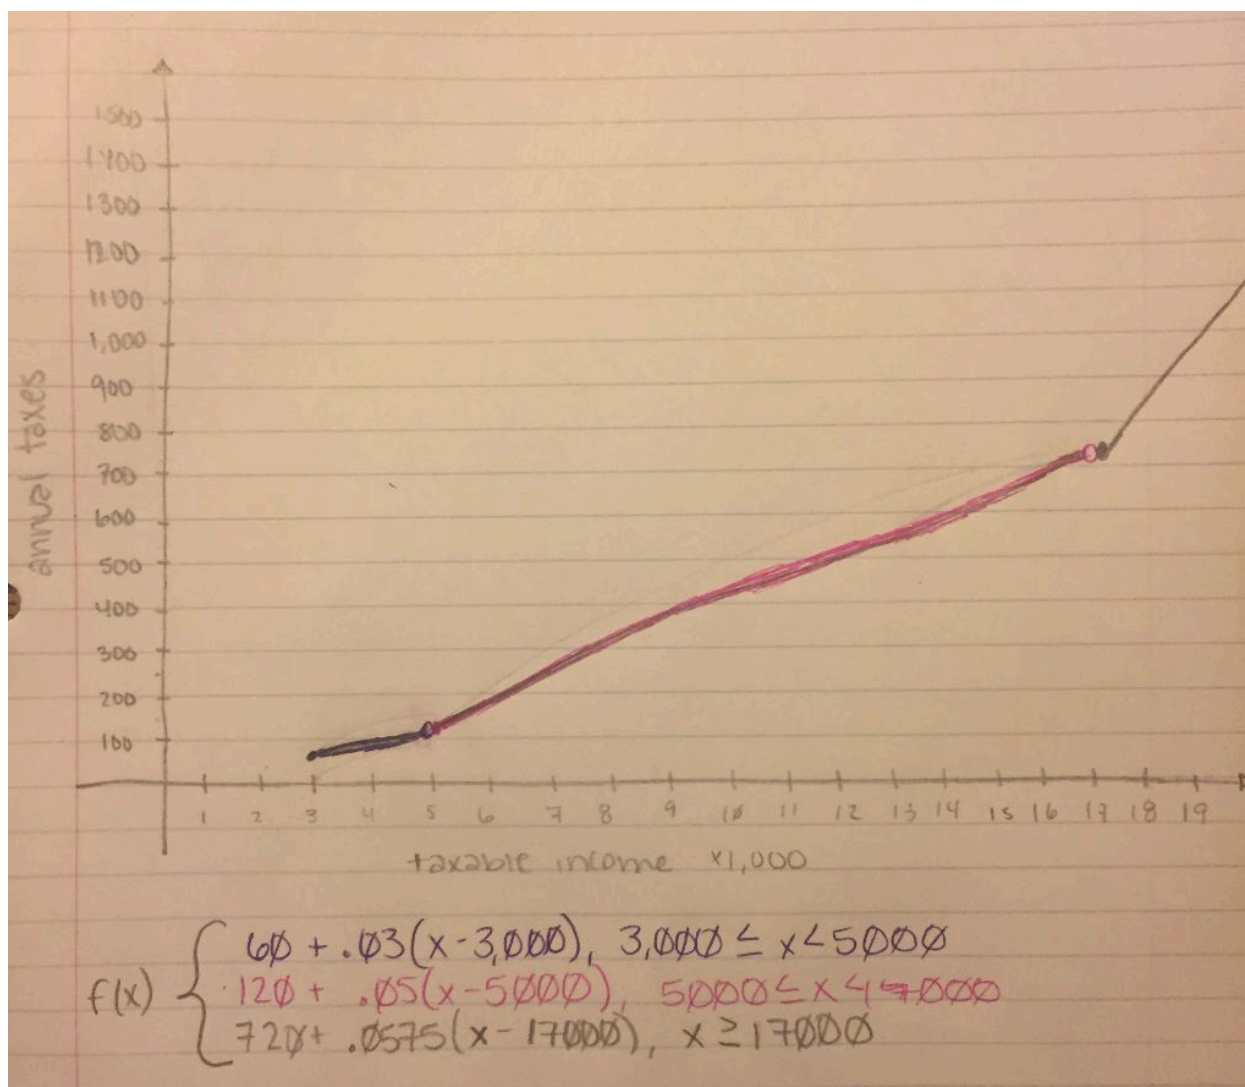 1500
1400
1300
1200
1100
1,000
900
800
700
600
500
400
300
200
100
annual taxes
1 2 3 4 5 6 7 8 9 10 11 12 13 14 15 16 17 18 19
taxable income x1,000
60 + .03(x-3,000), 3,000 ≤ x < 5000
f(x) { 120 + .05(x-5000), 5000 ≤ x < 17000
720+ .0575(x-17000), x ≥ 17000